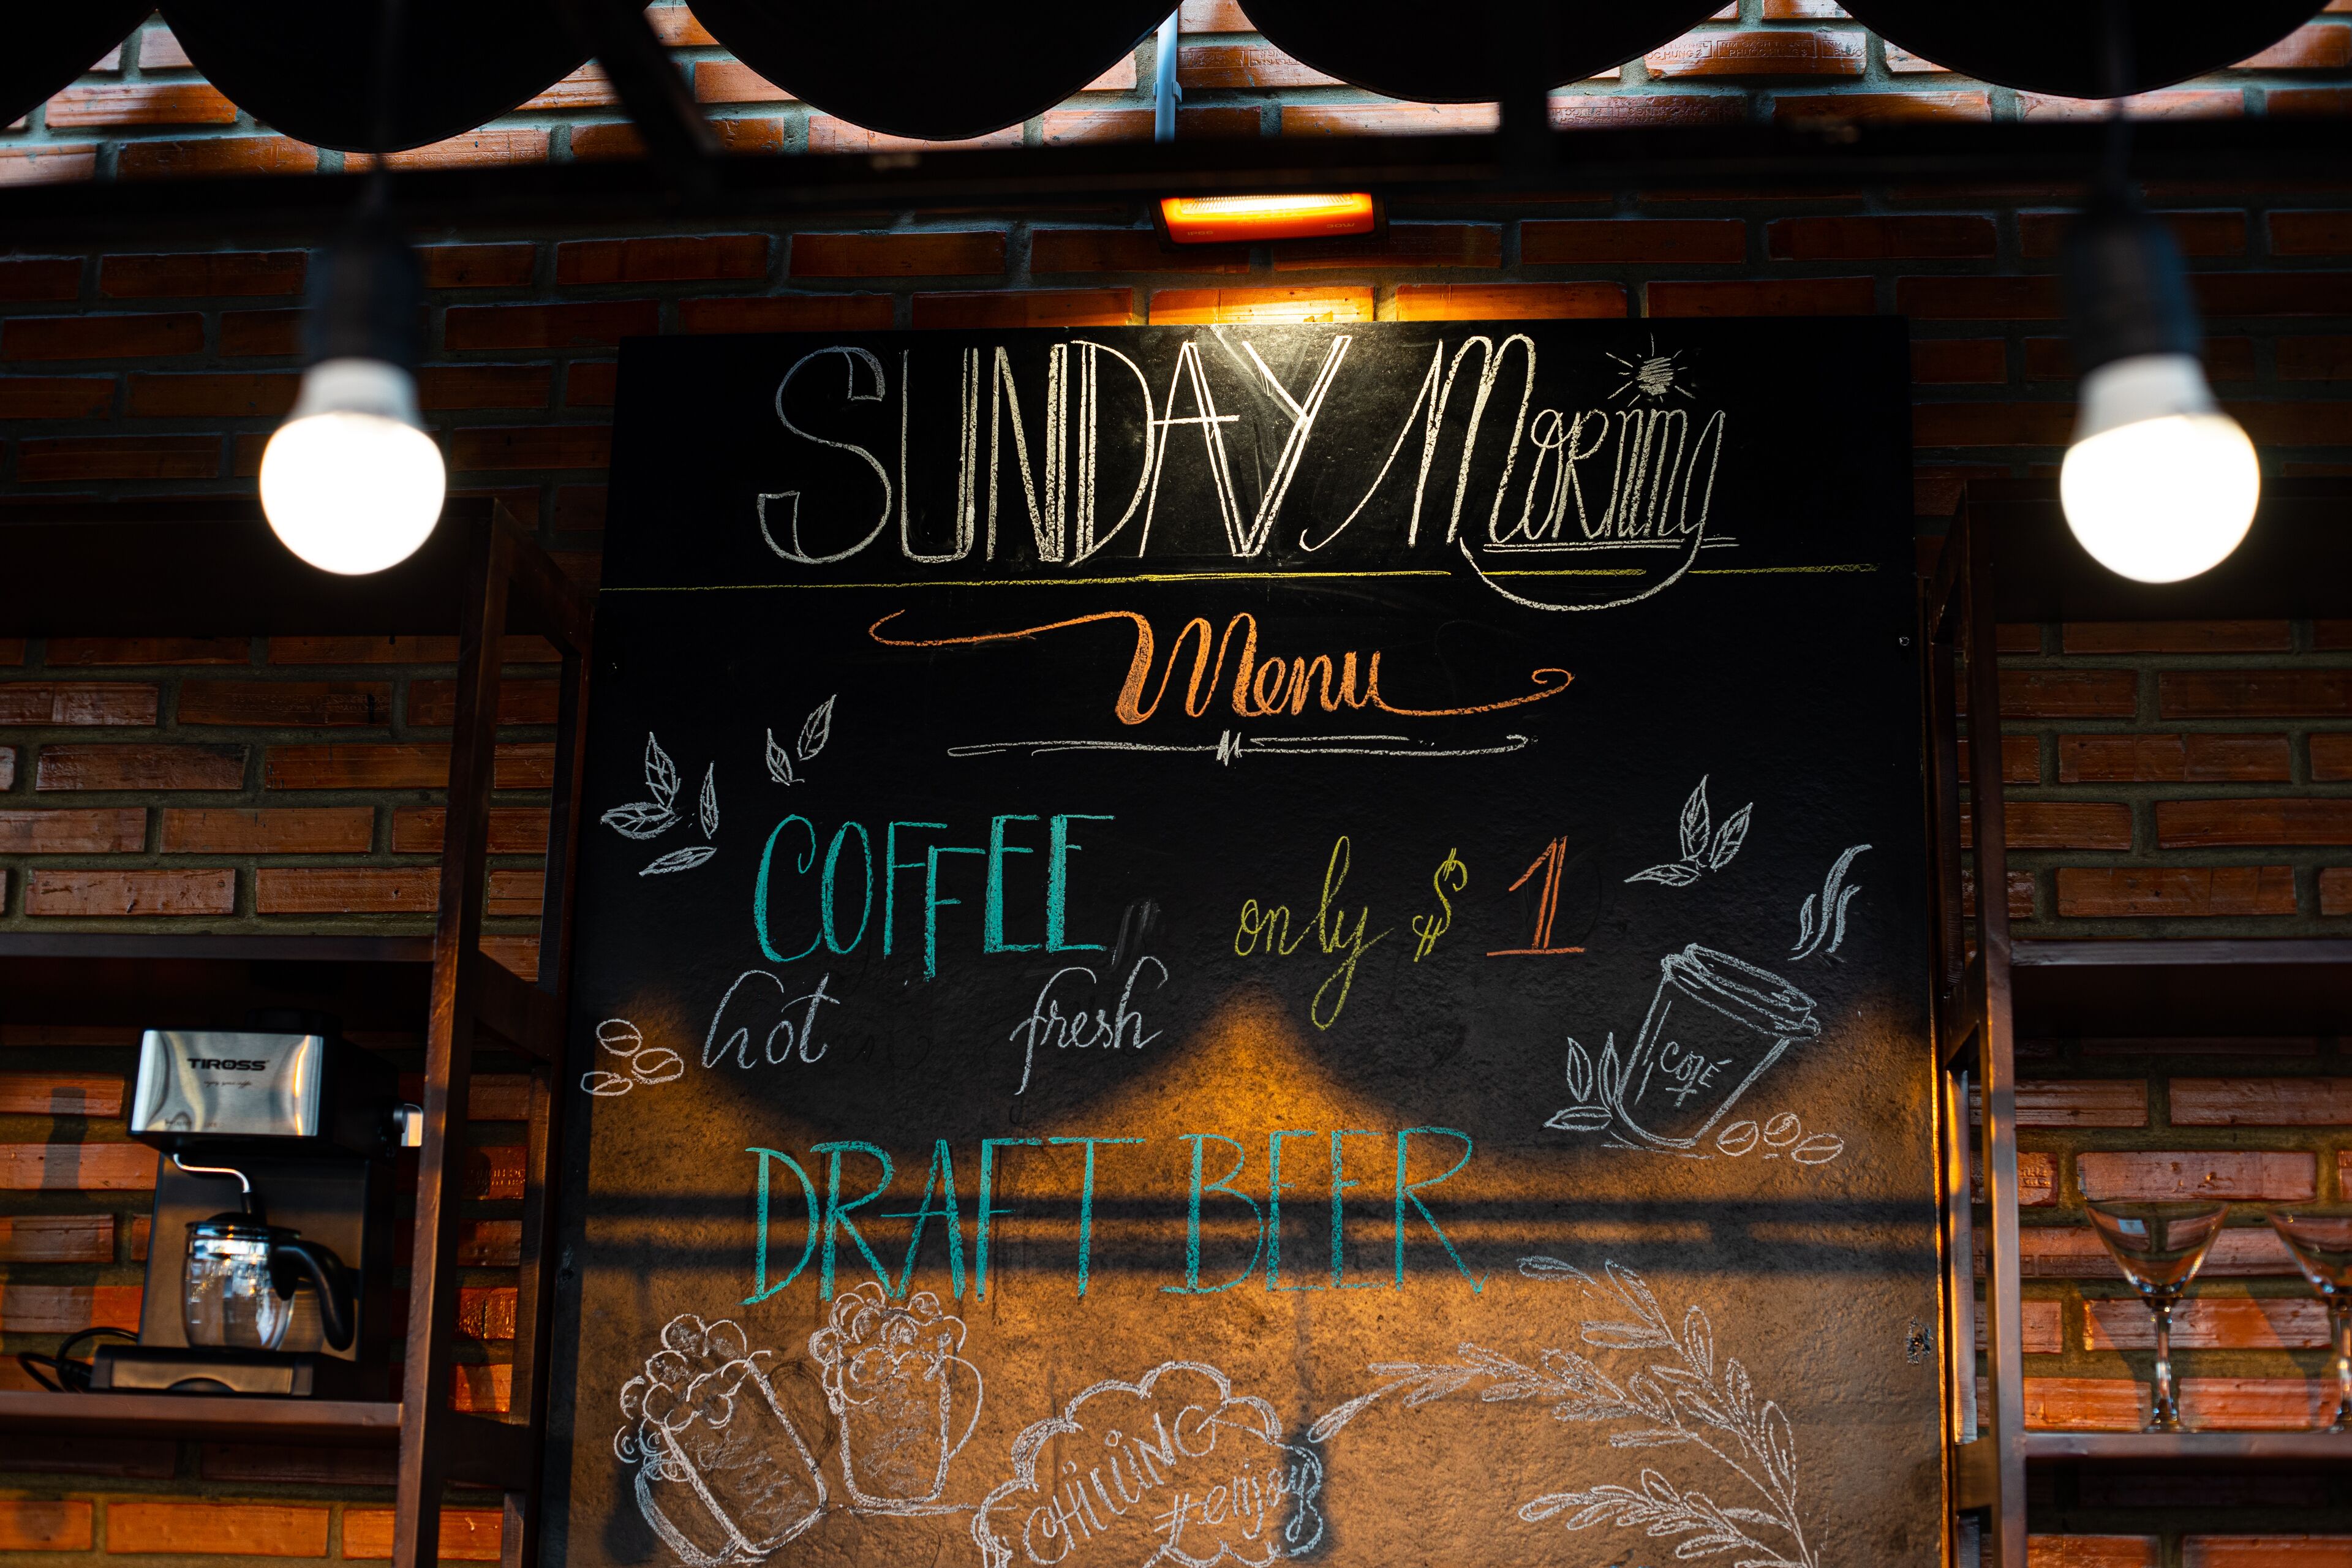 SUNDAY MORNING
Menu
COFFEE only $ 1
hot fresh
CAFÉ
DRAFT BEER
CHILLING
#enjoy
TIROSS